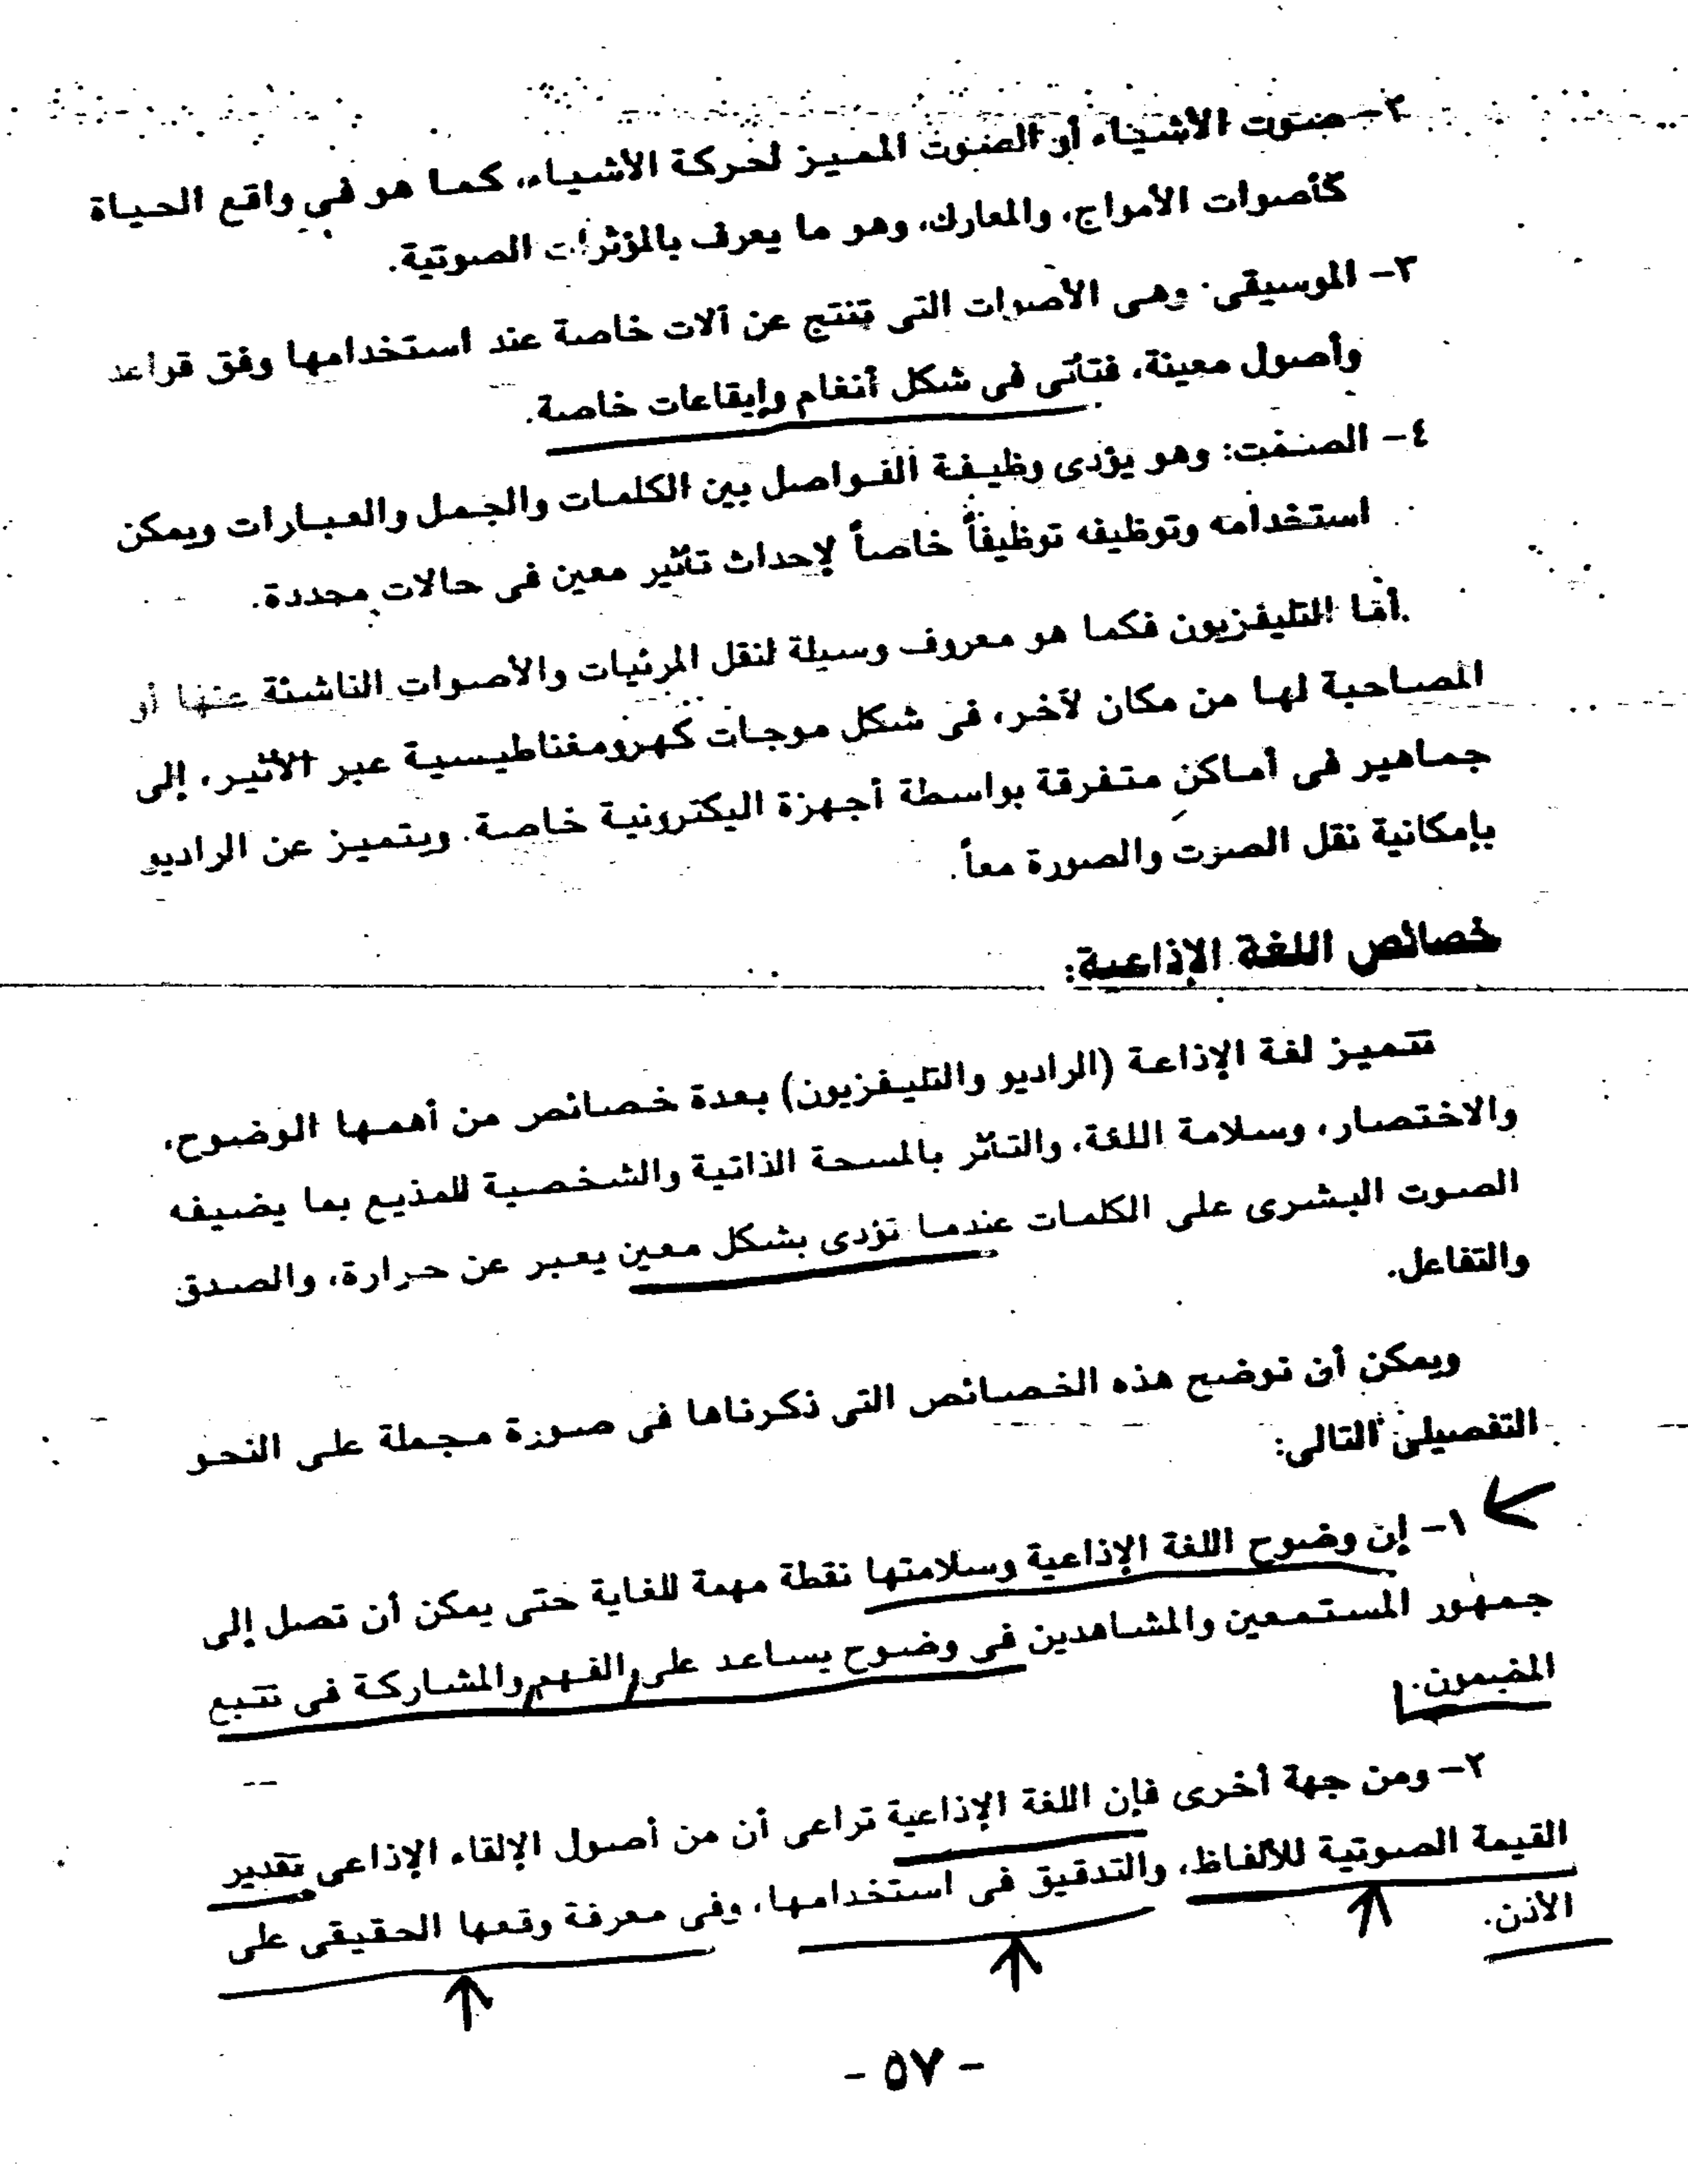 ٢- صوت الأشياء أو الصوت المميز لحركة الأشياء، كما هو في واقع الحياة
كأصوات الأمواج، والمعارك، وهو ما يعرف بالمؤثرات الصوتية.
٣- الموسيقى: وهى الأصوات التى تنتج عن آلات خاصة عند استخدامها وفق قواعد
وأصول معينة، فتأتى فى شكل أنغام وإيقاعات خاصة.
٤- الصمت: وهو يؤدى وظيفة الفواصل بين الكلمات والجمل والعبارات ويمكن
استخدامه وتوظيفه توظيفاً خاصاً لإحداث تأثير معين فى حالات محددة.
أما التليفزيون فكما هو معروف وسيلة لنقل المرئيات والأصوات الناشئة عنها أو
المصاحبة لها من مكان لآخر، فى شكل موجات كهرومغناطيسية عبر الأثير، إلى
جماهير فى أماكن متفرقة بواسطة أجهزة اليكترونية خاصة. ويتميز عن الراديو
بإمكانية نقل الصوت والصورة معاً.
خصائص اللغة الإذاعية:
تتميز لغة الإذاعة (الراديو والتليفزيون) بعدة خصائص من أهمها الوضوح،
والاختصار، وسلامة اللغة، والتأثر بالمسحة الذاتية والشخصية للمذيع بما يضيفه
الصوت البشرى على الكلمات عندما تؤدى بشكل معين يعبر عن حرارة، والصدق
والتفاعل.
ويمكن أن نوضح هذه الخصائص التى ذكرناها فى صورة مجملة على النحو
التفصيلى التالى:
١- إن وضوح اللغة الإذاعية وسلامتها نقطة مهمة للغاية حتى يمكن أن تصل إلى
جمهور المستمعين والمشاهدين فى وضوح يساعد على الفهم والمشاركة فى تتبع
المضمون.
٢- ومن جهة أخرى فإن اللغة الإذاعية تراعى أن من أصول الإلقاء الإذاعى تقدير
القيمة الصوتية للألفاظ، والتدقيق فى استخدامها، وفى معرفة وقعها الحقيقى على
الأذن.
- ٥٧ -